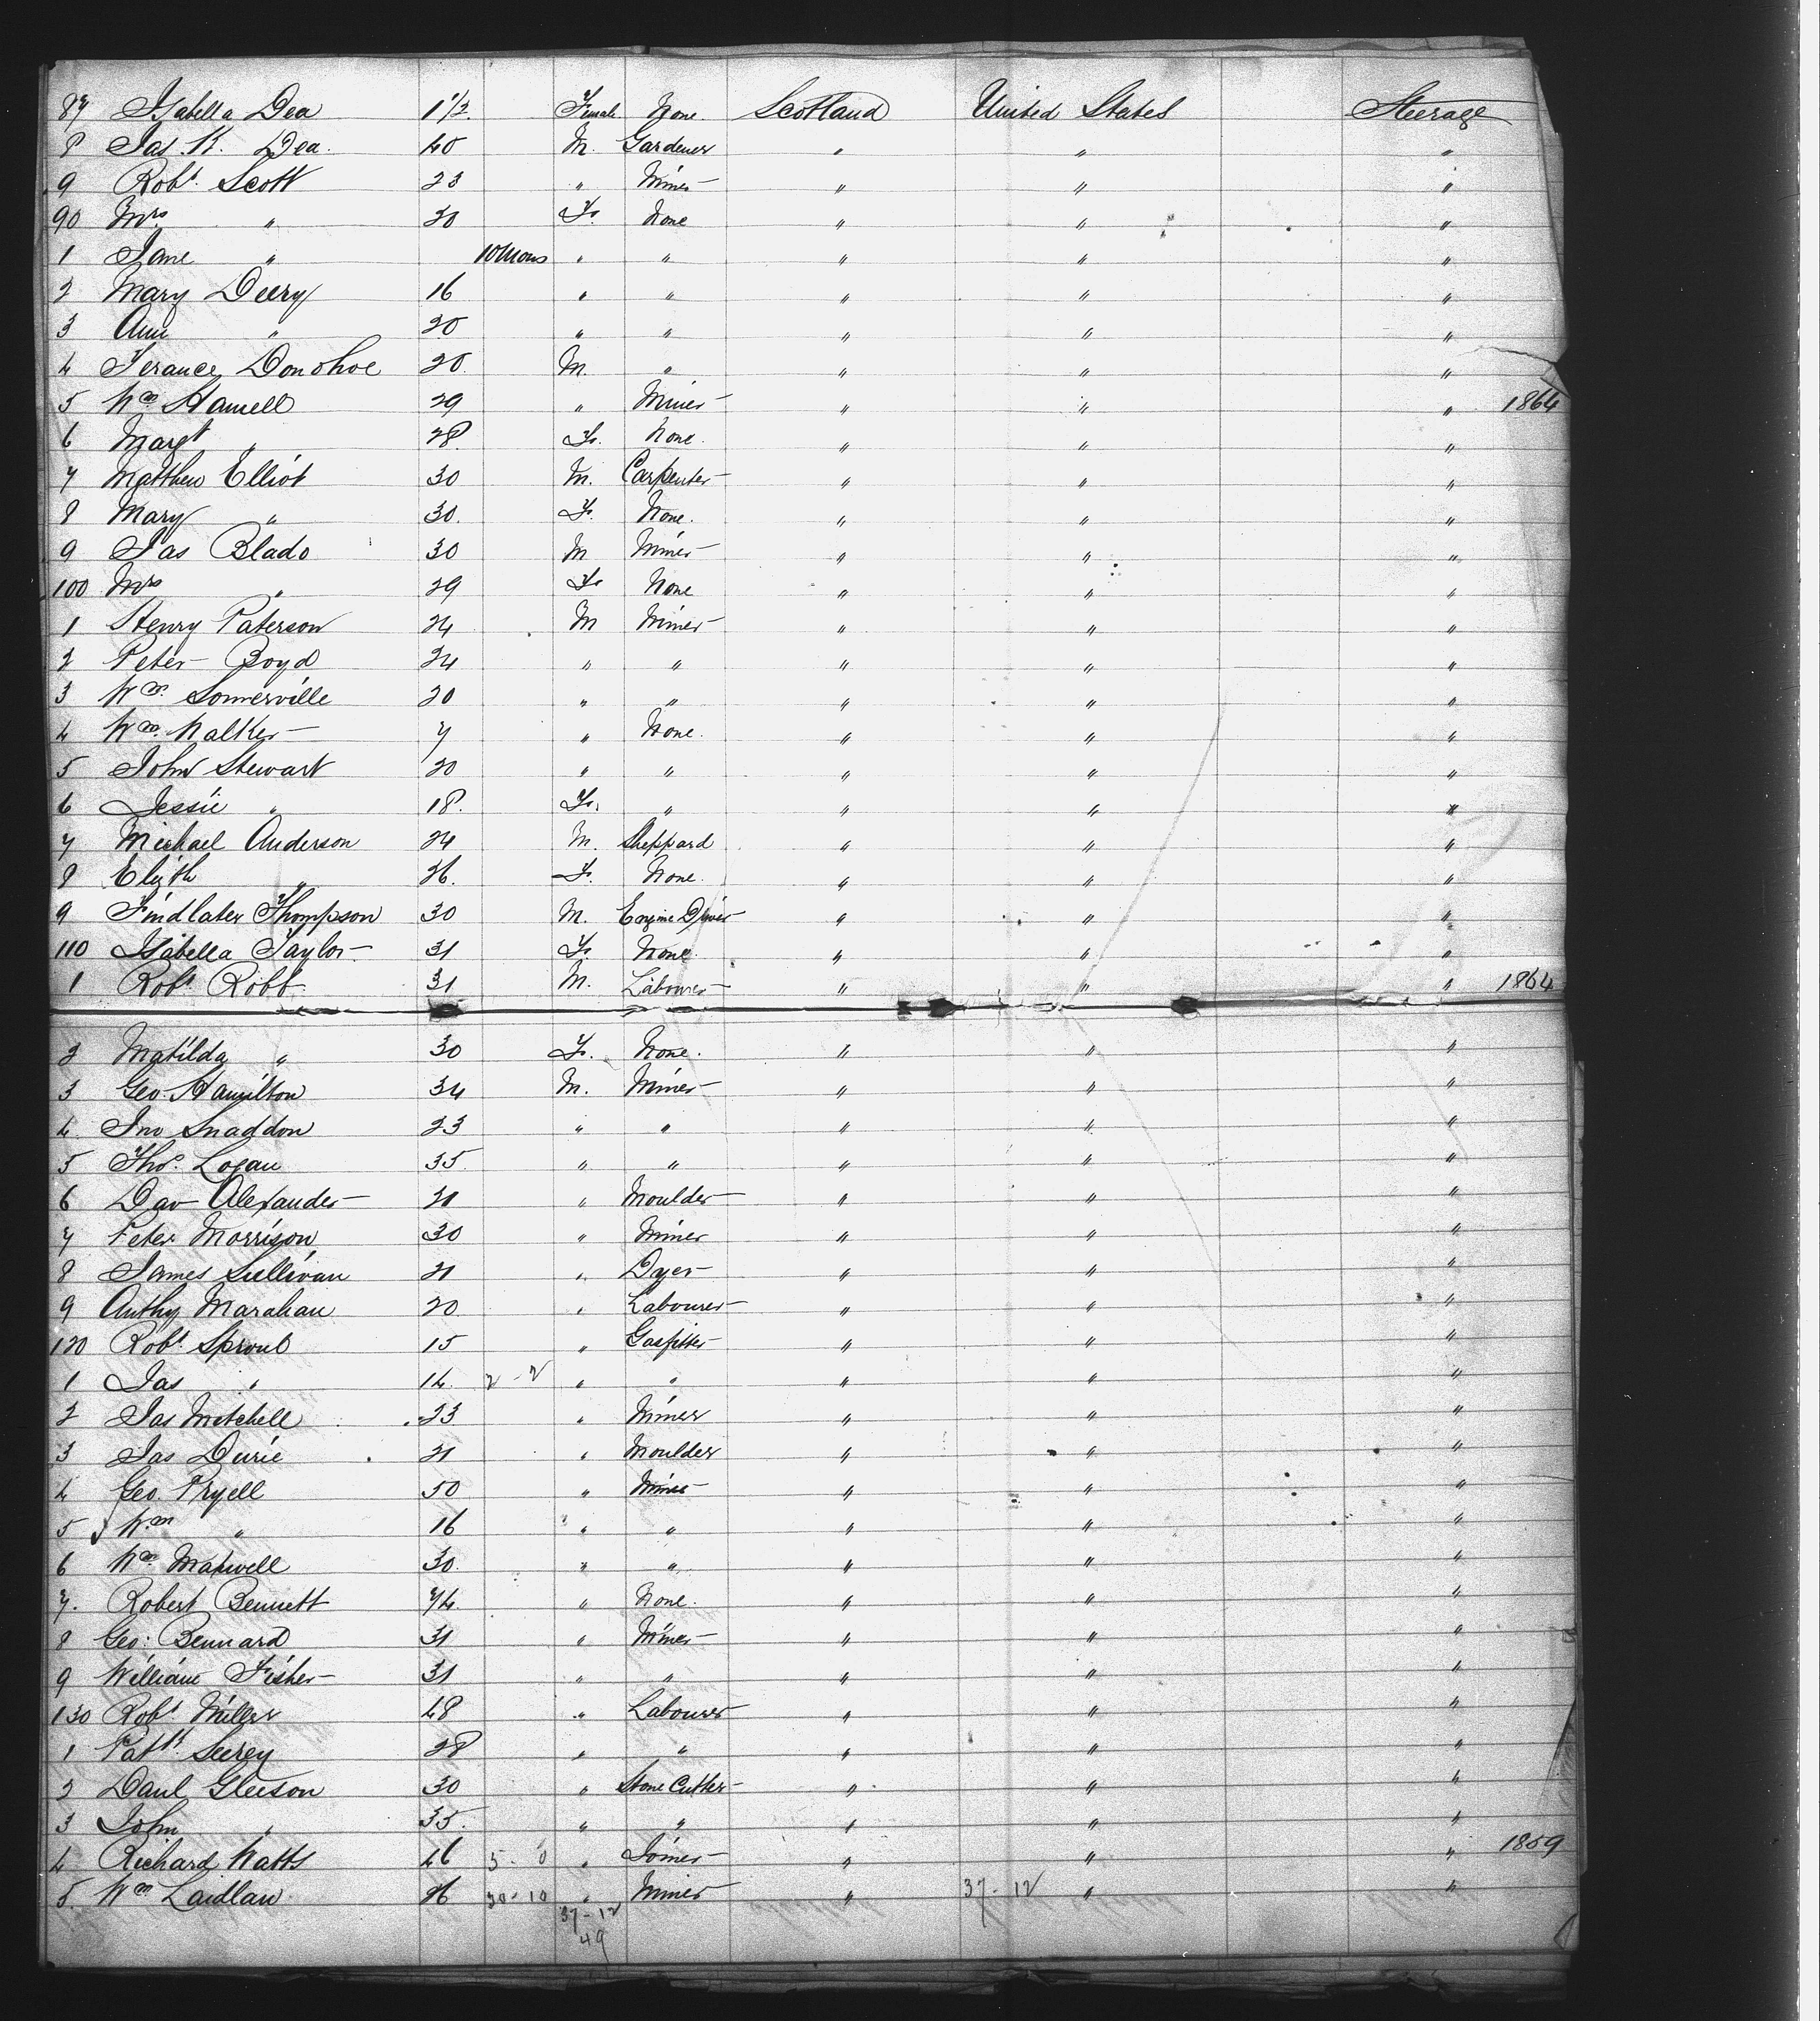 87 Isabella Dea 1 1/2 Female None Scotland United States Steerage
8 Jas. K. Dea. 40 M. Gardener " " "
9 Robt. Scott 23 " Miner " " "
90 Mrs " 30 F. None " " "
1 Jane " 10 Mons " " " " "
2 Mary Deery 16 " " " " "
3 Ann " 20 " " " " "
4 Terance Donohoe 20. M. " " " "
5 Wm Hamell 29 " Miner " " " 1864
6 Margt " 28. F. None. " " "
7 Matthew Elliot 30 M. Carpenter " " "
8 Mary " 30. F. None. " " "
9 Jas Blado 30 M Miner " " "
100 Mrs " 29 F None " " "
1 Henry Paterson 24 M Miner " " "
2 Peter Boyd 24 " " " " "
3 Wm. Somerville 20 " " " " "
4 Wm. Walker 7 " None. " " "
5 John Stewart 20 " " " " "
6 Jessie " 18. F. " " " "
7 Michael Anderson 24 M. Sheppard " " "
8 Elizth " 26. F. None. " " "
9 Findlater Thompson 30 M. Engine Driver " " "
110 Isabella Taylor 31 F. None " " "
1 Robt. Robb 31 M. Labourer " " " 1864
2 Matilda " 30 F. None. " " "
3 Geo. Hamilton 34 M. Miner " " "
4. Jno Snaddon 23 " " " " "
5 Thos. Logan 35. " " " " "
6 Dav Alexander 21 " Moulder " " "
7 Peter Morrison 30 " Miner " " "
8 James Sullivan 21 " Dyer " " "
9 Anthy Marahan 20 " Labourer " " "
120 Robt. Sproul 15 " Gasfitter " " "
1 Jas " 14. 2 - 2 " " " " "
2 Jas Mitchell 23 " Miner " " "
3 Jas Durie 21 " Moulder " " "
4 Geo. Pryell 50 " Miner " " "
5 Wm " 16 " " " " "
6 Wm Maxwell 30. " " " " "
7. Robert Bennett 74. " None. " " "
8 Geo: Bennard 31 " Miner " " "
9 William Fisher 31 " " " " "
130 Robt. Miller 48 " Labourer " " "
1 Patk. Seerey 28 " " " " "
2 Danl Gleeson 30 " Stone Cutter " " "
3 John " 35. " " " " "
4 Richard Watts 46 5 - 0 " Joiner " " " 1859
5. Wm Laidlaw 26 30 - 10 " Miner " 37 - 12 " "
37 - 12
49